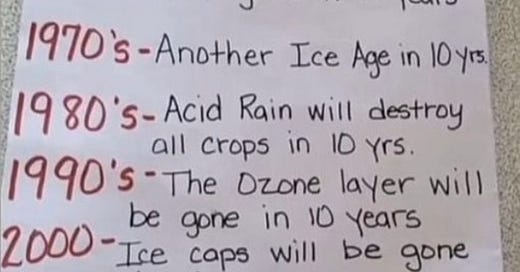 1970's - Another Ice Age in 10 yrs.
1980's - Acid Rain will destroy
all crops in 10 yrs.
1990's - The Ozone layer will
be gone in 10 years
2000 - Ice caps will be gone